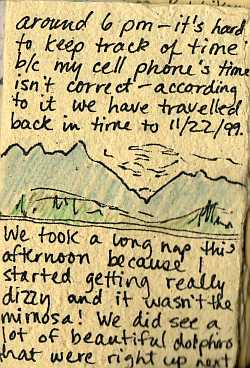 around 6 pm - it's hard
to keep track of time
b/c my cell phone's time
isn't correct - according
to it we have travelled
back in time to 11/22/99.
We took a long nap this
afternoon because I
started getting really
dizzy and it wasn't the
mimosa! We did see a
lot of beautiful dolphins
that were right up next